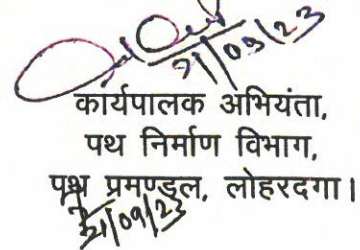 21/09/23
कार्यपालक अभियंता,
पथ निर्माण विभाग,
पथ प्रमण्डल, लोहरदगा।
21/09/23